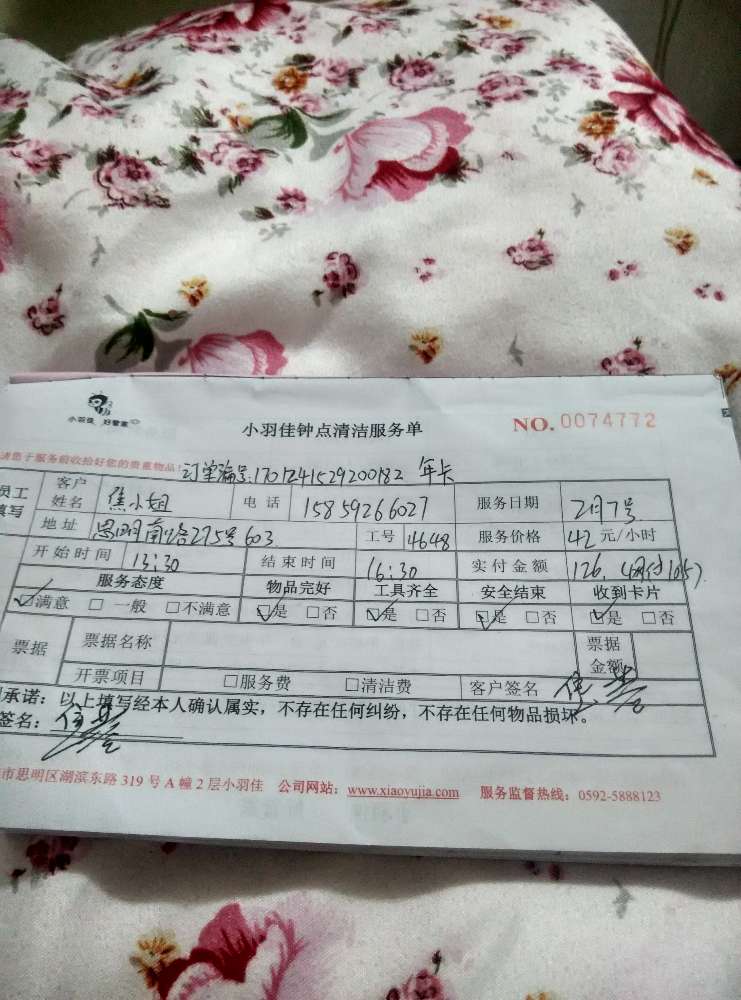 小羽佳 好管家
小羽佳钟点清洁服务单
NO. 0074772
请您于服务前收拾好您的贵重物品!
订单编号:1701241529200182 年卡
员工
填写
客户
姓名 焦小姐 电话 15859266027 服务日期 2月7号
地址 思明南路275号603 工号 4648 服务价格 42 元/小时
开始时间 13:30 结束时间 16:30 实付金额 126,
服务态度 物品完好 工具齐全 安全结束 收到卡片
☑满意 □一般 □不满意 ☑是 □否 ☑是 □否 ☑是 □否 ☑是 □否
票据 票据名称 票据
金额
开票项目 □服务费 □清洁费 客户签名
承诺:以上填写经本人确认属实,不存在任何纠纷,不存在任何物品损坏。
签名:
市思明区湖滨东路 319 号 A 幢 2 层小羽佳 公司网站:www.xiaoyujia.com 服务监督热线:0592-5888123